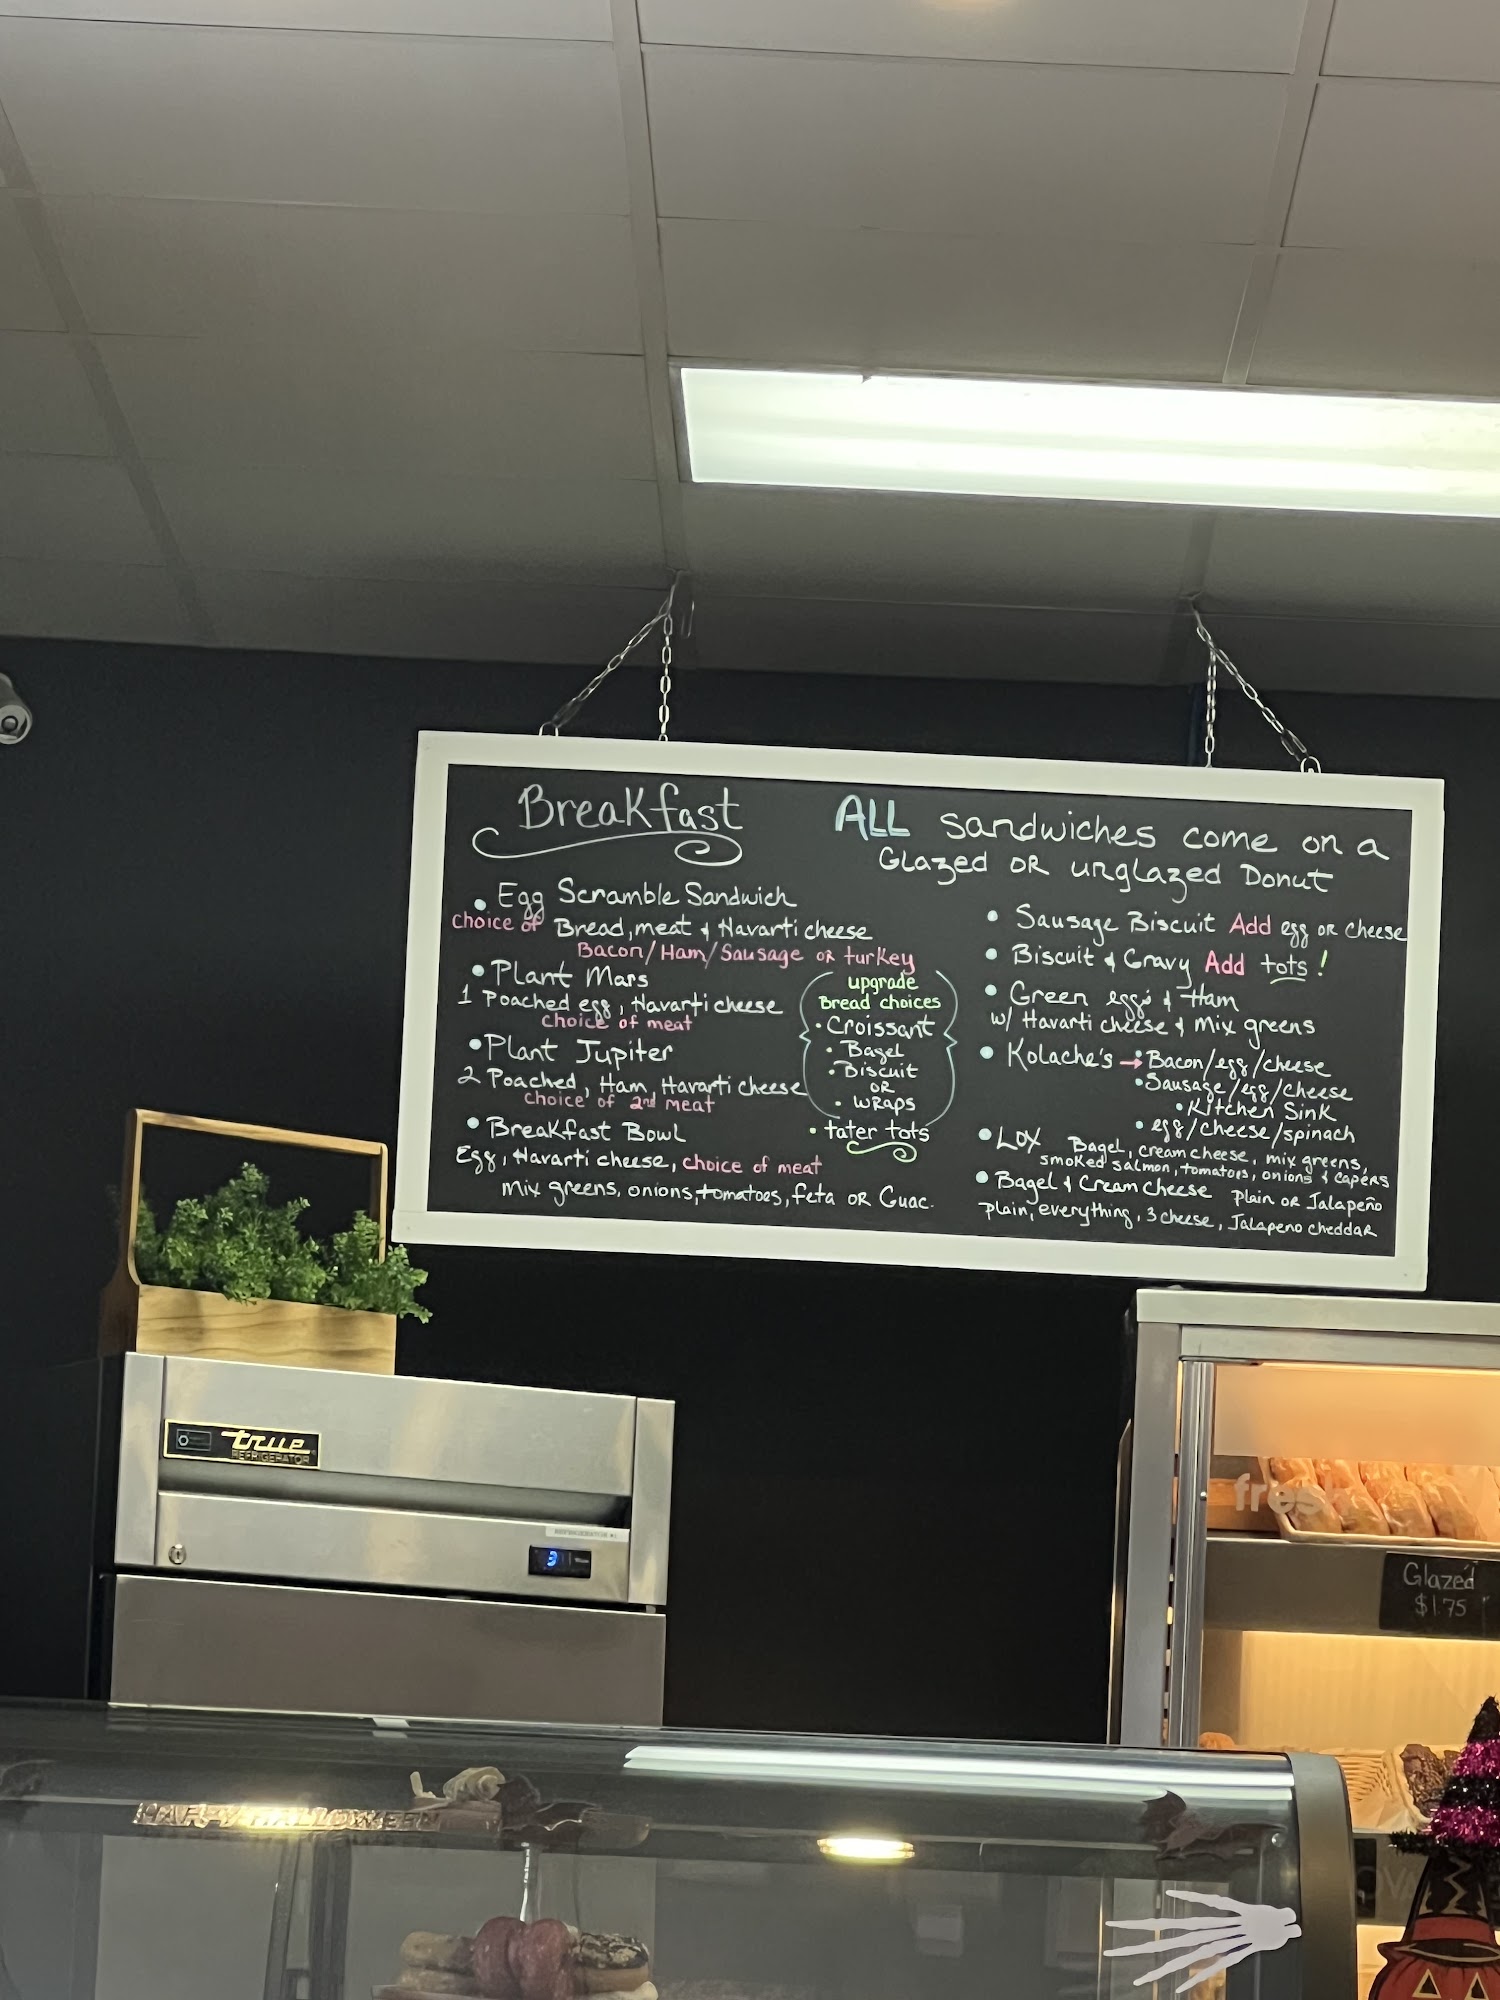 Breakfast
ALL sandwiches come on a
Glazed OR unglazed Donut
• Egg Scramble Sandwich
choice of Bread, meat & Havarti cheese
Bacon/Ham/Sausage or turkey
• Plant Mars
1 Poached egg, Havarti cheese
choice of meat
• Plant Jupiter
2 Poached, Ham, Havarti cheese
choice of 2nd meat
• Breakfast Bowl
Egg, Havarti cheese, choice of meat
Mix greens, onions, tomatoes, feta or Guac.
upgrade
Bread choices
• Croissant
• Bagel
• Biscuit
OR
• WRAPS
• tater tots
• Sausage Biscuit Add egg or cheese
• Biscuit & Gravy Add tots!
• Green egg's & Ham
w/ Havarti cheese & Mix greens
• Kolache's → • Bacon/egg/cheese
• Sausage/egg/cheese
• Kitchen Sink
• egg/cheese/spinach
• Lox Bagel, cream cheese, mix greens,
smoked salmon, tomatoes, onions & capers
• Bagel & Cream cheese Plain or Jalapeño
Plain, everything, 3 cheese, Jalapeno cheddar
true
REFRIGERATOR
REFRIGERATOR #1
3
fresh
Glazed
$1.75
HAPPY HALLOWEEN